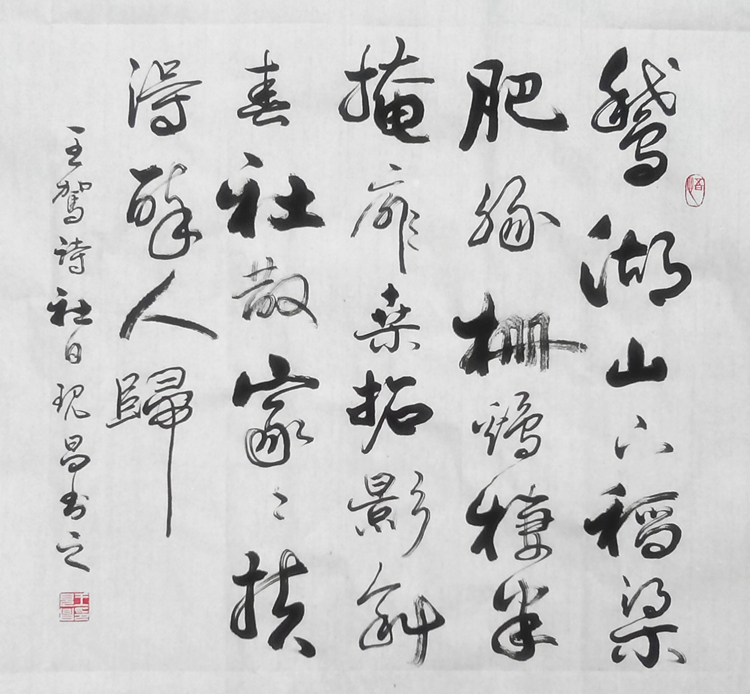 鵝湖山下稻梁
肥豚栅鷄棲半
掩扉桑柘影斜
春社散家々扶
得醉人歸
王駕詩社日现昌书之